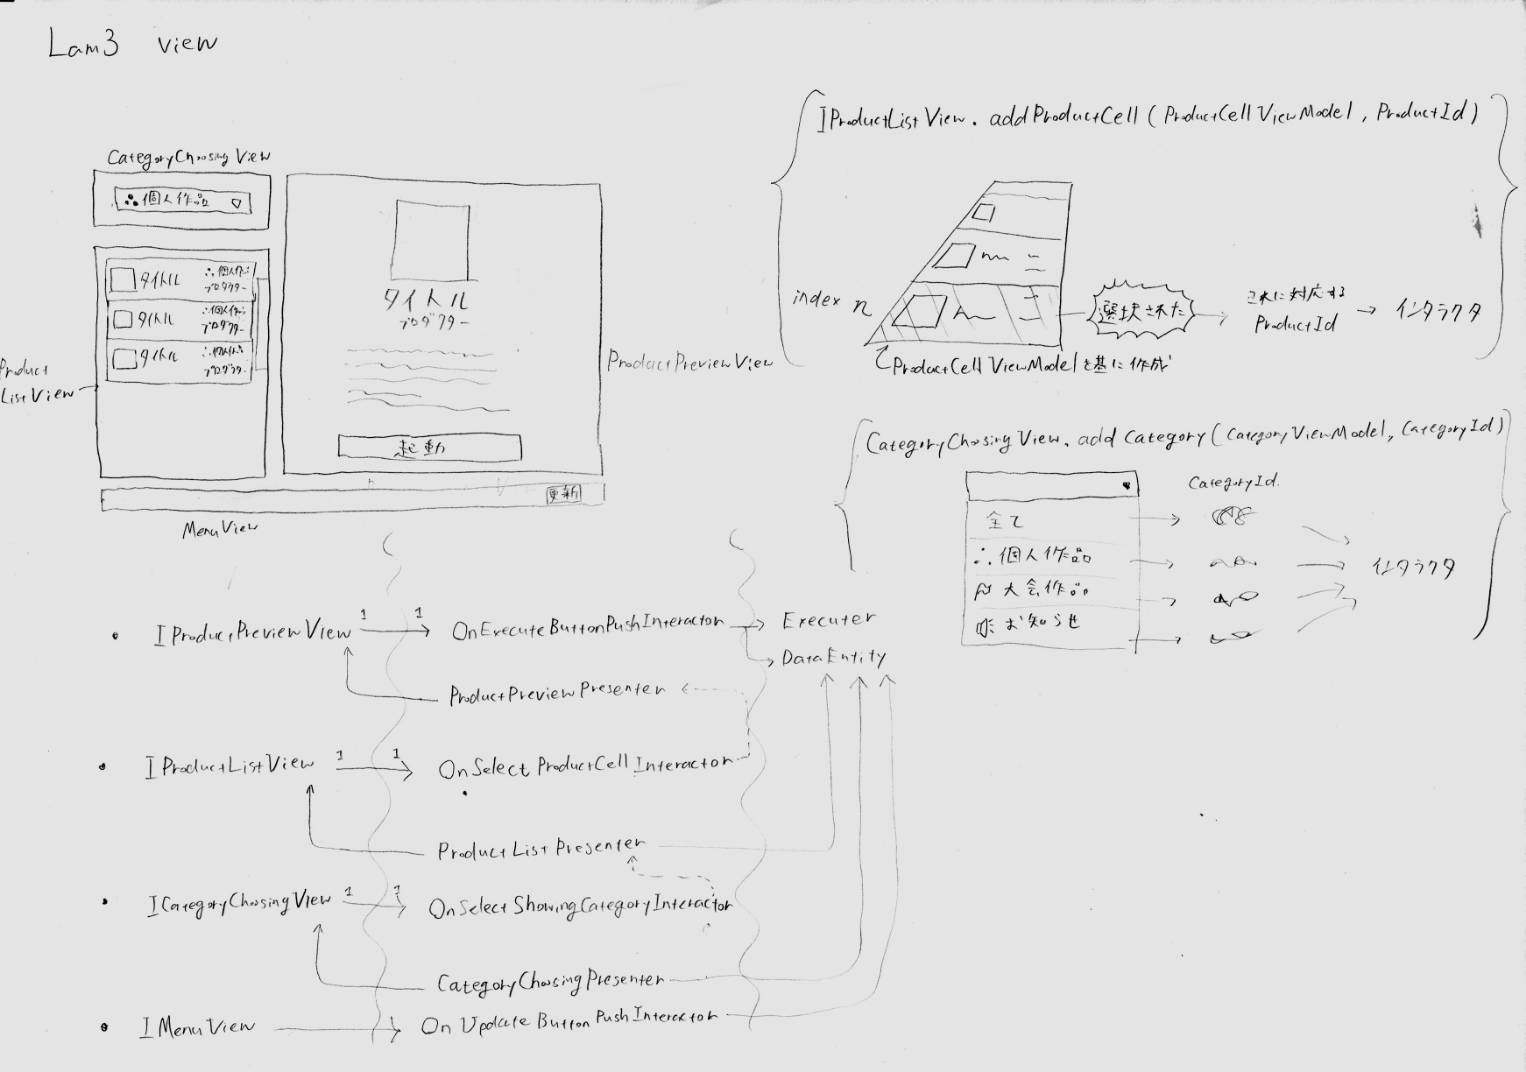 Lam3 view
CategoryChoosingView
∴個人作品 ▽
タイトル
∴個人作品
プログラマー
タイトル
∴個人作品
タイトル
∴個人作品
Product
ListView
タイトル
起動
ProductPreviewView
更新
MenuView
IProductListView.addProductCell(ProductCellViewModel, ProductId)
index n
選択された
これに対応する
ProductId
インタラクタ
ProductCellViewModelを基に作成
CategoryChoosingView.addCategory(CategoryViewModel, CategoryId)
CategoryId.
全て
∴個人作品
大会作品
お知らせ
インタラクタ
• IProductPreviewView 1 → 1 OnExecuteButtonPushInteractor → Executer
DataEntity
ProductPreviewPresenter
• IProductListView 1 → 1 OnSelectProductCellInteractor
ProductListPresenter
• ICategoryChoosingView 1 → 1 OnSelectShowingCategoryInteractor
CategoryChoosingPresenter
• IMenuView → OnUpdateButtonPushInteractor